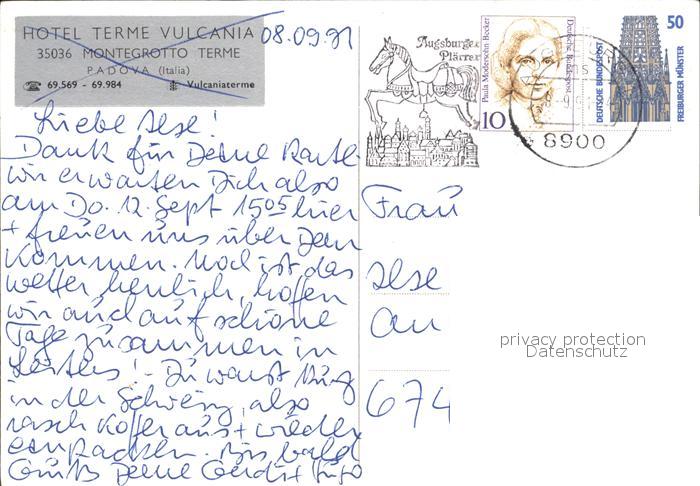 HOTEL TERME VULCANIA
35036 MONTEGROTTO TERME
PADOVA (Italia)
☎ 69.569 - 69.984 Vulcaniaterme
08.09.91
Augsburger
Plärrer
Paula Modersohn-Becker
Deutsche Bundespost
10
50
DEUTSCHE BUNDESPOST
FREIBURGER MÜNSTER
8900
Liebe Ilse!
Dank für Deine Karte
wir erwarten Dich also
am Do. 12. Sept 1505 hier
+ freuen uns über Dein
Kommen. Noch ist das
Wetter herrlich, hoffen
wir auch auf schöne
Tage zusammen in
! - Du warst
in der Schweiz, also
rasch Koffer aus + wieder
einpacken. Bis bald
Gruß Deine Gerdi +
Frau
Ilse
An
674
privacy protection
Datenschutz